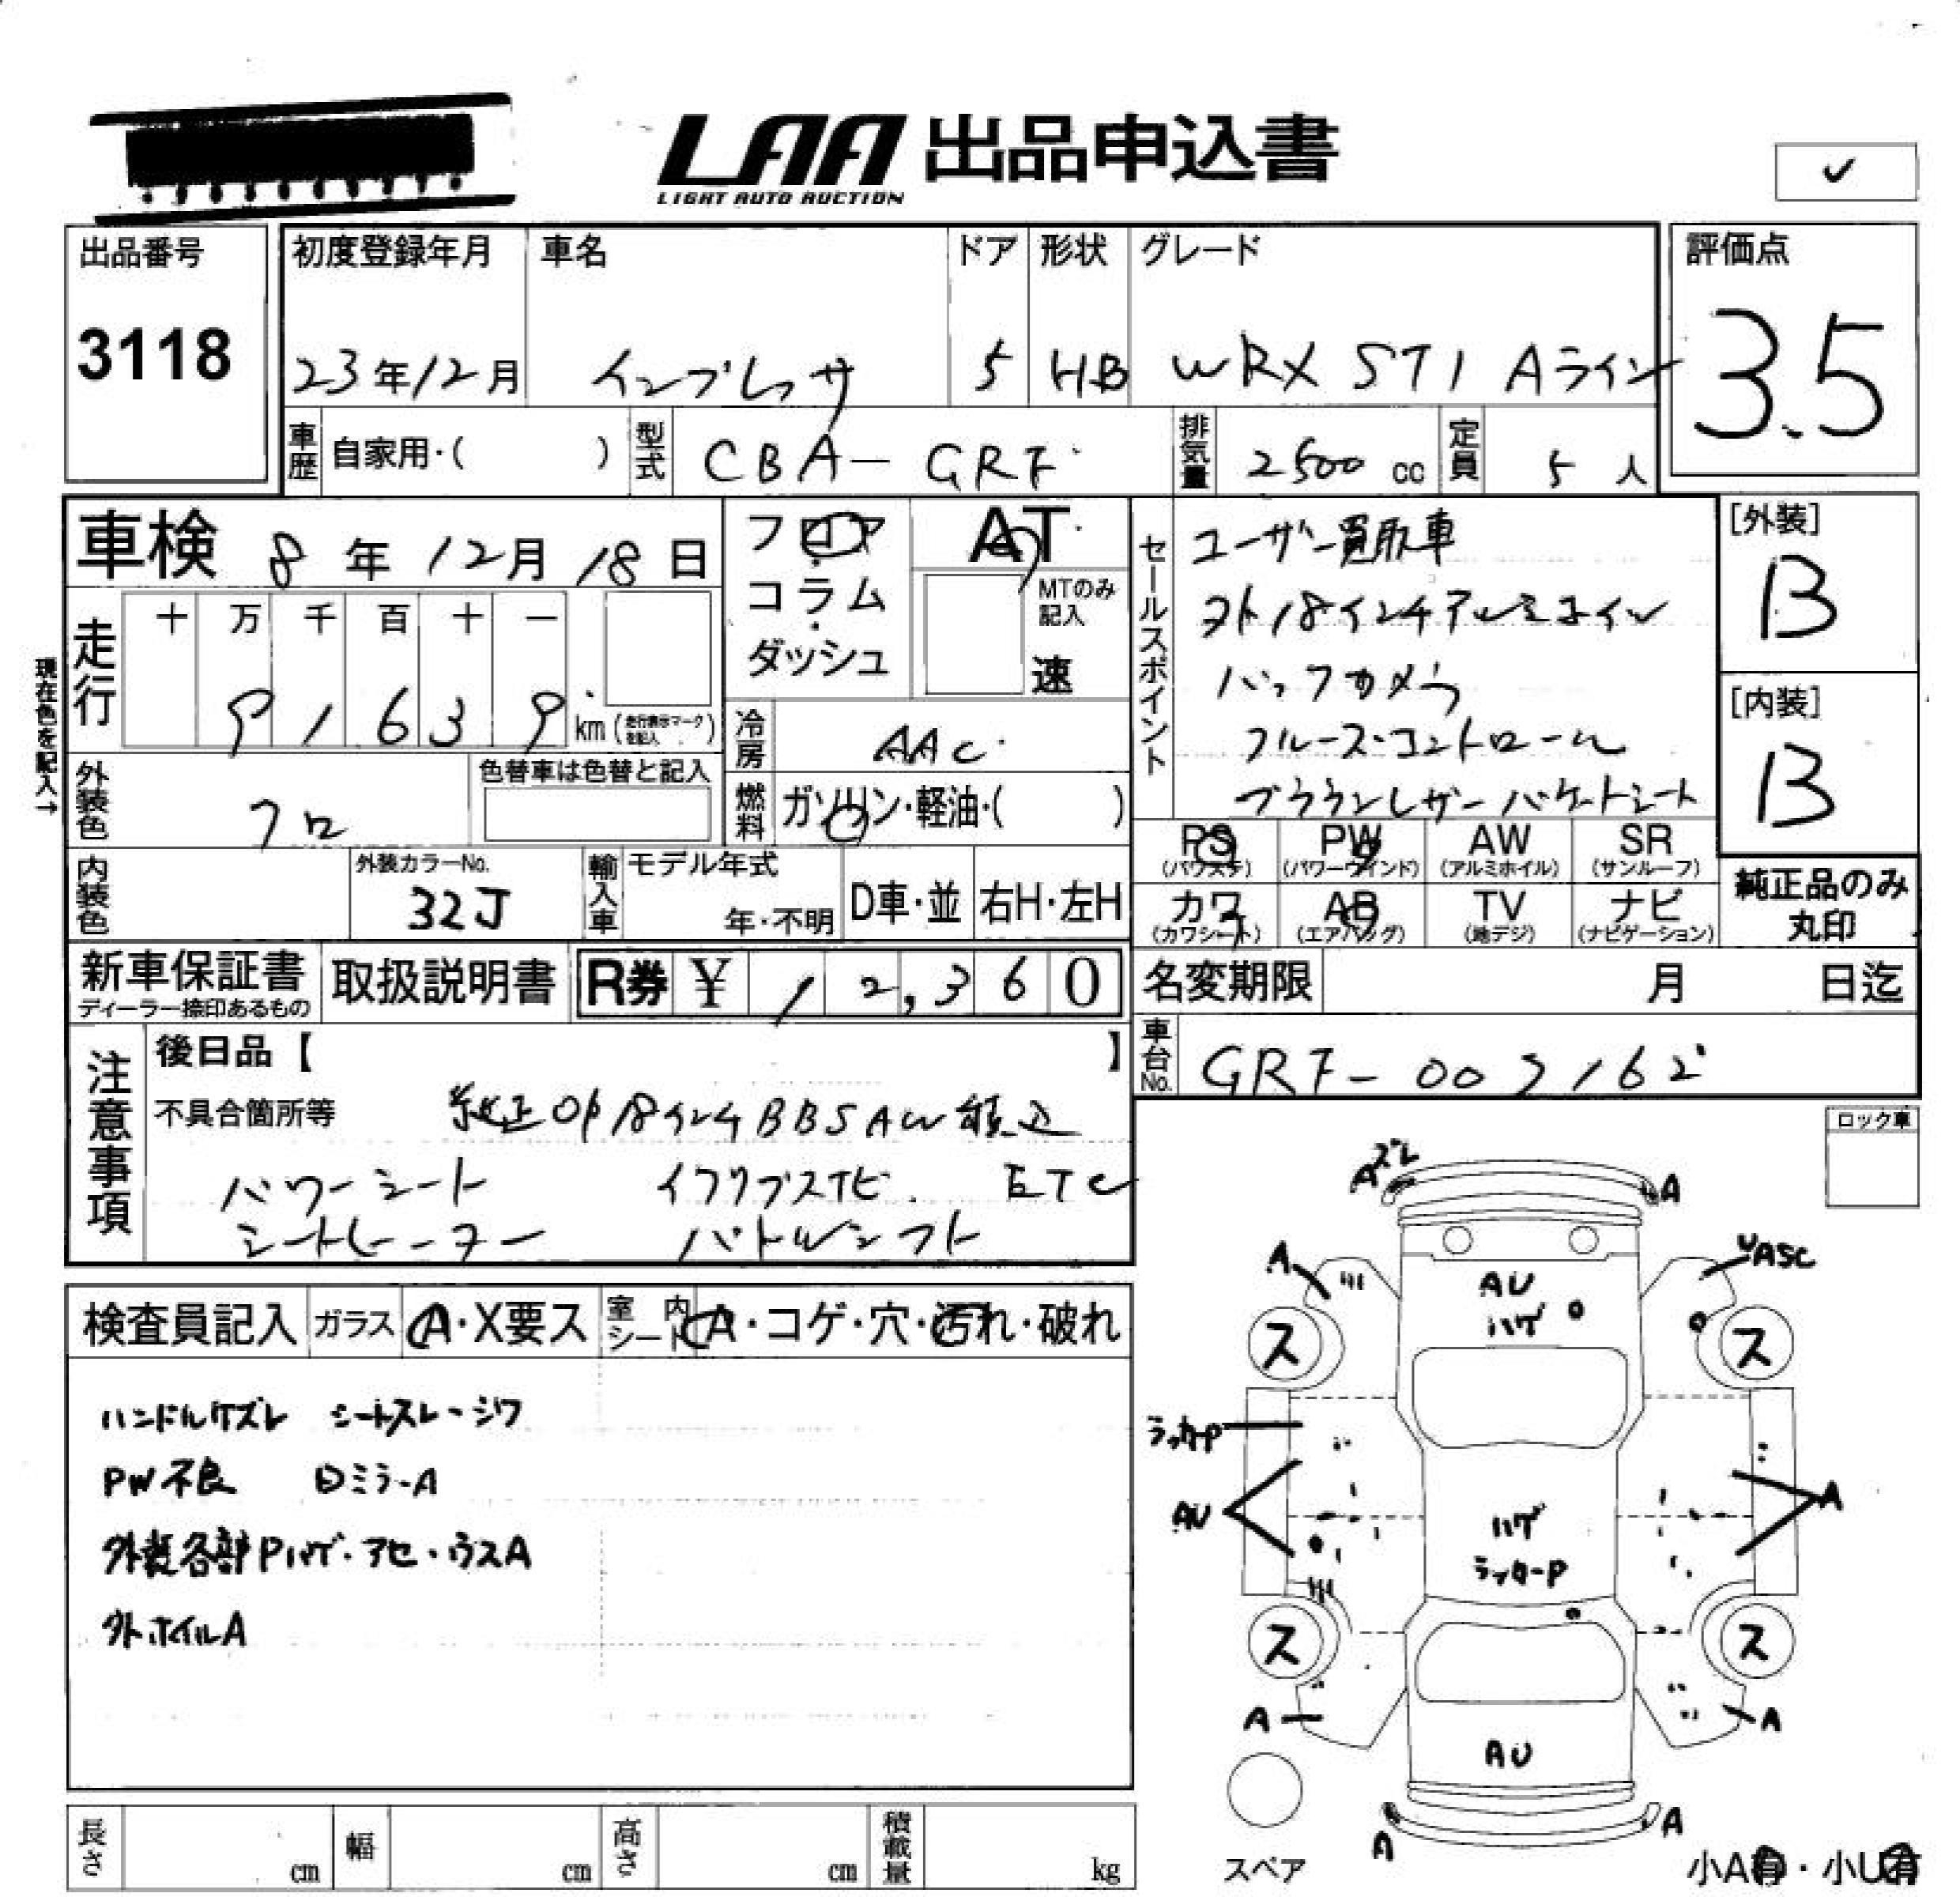 LAA 出品申込書
LIGHT AUTO AUCTION
✓
出品番号
3118
初度登録年月
23年12月
車名
インプレッサ
ドア
5
形状
HB
グレード
WRX STI Aライン
評価点
3.5
車歴 自家用・( )
型式 CBA-GRF
排気量 2500 cc
定員 5 人
車検 8年 12月 18日
フロア
コラム
ダッシュ
AT
MTのみ記入
速
走行
十 万 千 百 十 一
9 1 6 3 9 km (走行表示マークを記入)
現在色を記入→
冷房 AAC
燃料 ガソリン・軽油・( )
外装色 クロ
色替車は色替と記入
内装色
外装カラーNo.
32J
輸入車
モデル年式
年・不明
D車・並
右H・左H
セールスポイント
ユーザー買取車
外18インチアルミホイル
バックカメラ
クルーズ・コントロール
ブラウンレザーバケットシート
[外装]
B
[内装]
B
PS (パワステ)
PW (パワーウインド)
AW (アルミホイル)
SR (サンルーフ)
カワ (カワシート)
AB (エアバッグ)
TV (地デジ)
ナビ (ナビゲーション)
純正品のみ
丸印
新車保証書
ディーラー捺印あるもの
取扱説明書
R券 ¥ 12,360
名変期限 月 日迄
車台No. GRF-003162
注意事項
後日品【 】
不具合箇所等 純正OP18インチBBSAW積込
パワーシート ETC
シートヒーター パドルシフト
ロック車
検査員記入
ガラス A・X要ス
室内シート A・コゲ・穴・汚れ・破れ
ハンドルケズレ シートスレ・シワ
PW不良 Dミラ-A
外装各部Pハゲ・アセ・ウスA
外ホイルA
Aズレ
A
A
UASC
AU
ハゲ
ス
ス
ラッカーP
AU
A
ハゲ
ラッカーP
ス
ス
A
A
AU
A
A
スペア
小A有・小U有
長さ cm
幅 cm
高さ cm
積載量 kg